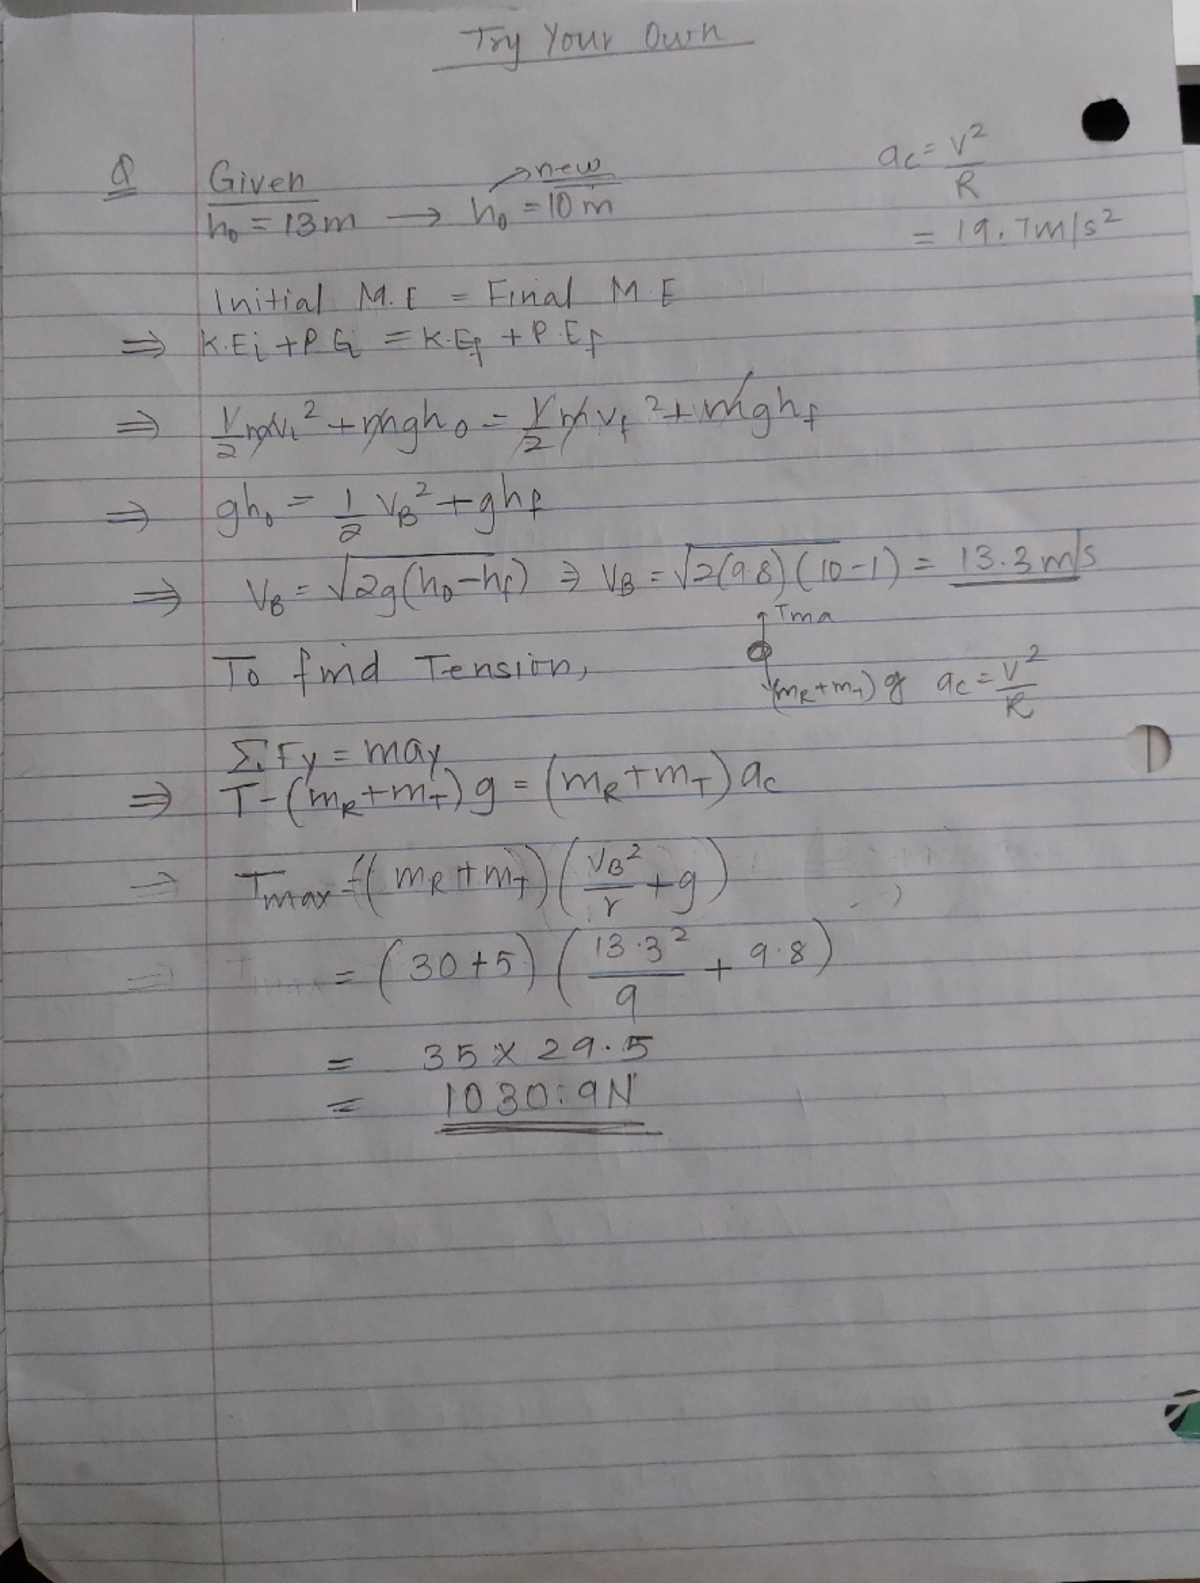 Try Your Own
Q Given
h₀ = 13m → h₀ = 10m
new
a_c = V²/R
= 19.7m/s²
Initial M.E = Final M E
⇒ K.Ei + P.Ei = K.Ef + P.Ef
⇒ 1/2 mvi² + mgh₀ = 1/2 mvf² + mghf
⇒ gh₀ = 1/2 VB² + ghf
⇒ VB = √2g(h₀-hf) ⇒ VB = √2(9.8)(10-1) = 13.3m/s
Tma
To find Tension,
(mR+mT) g a_c = V²/R
ΣFy = may
⇒ T-(mR+mT)g = (mR+mT)ac
⇒ Tmax = (mR+mT)(VB²/r + g)
⇒ = (30+5)(13.3²/9 + 9.8)
= 35 × 29.5
= 1030.9N